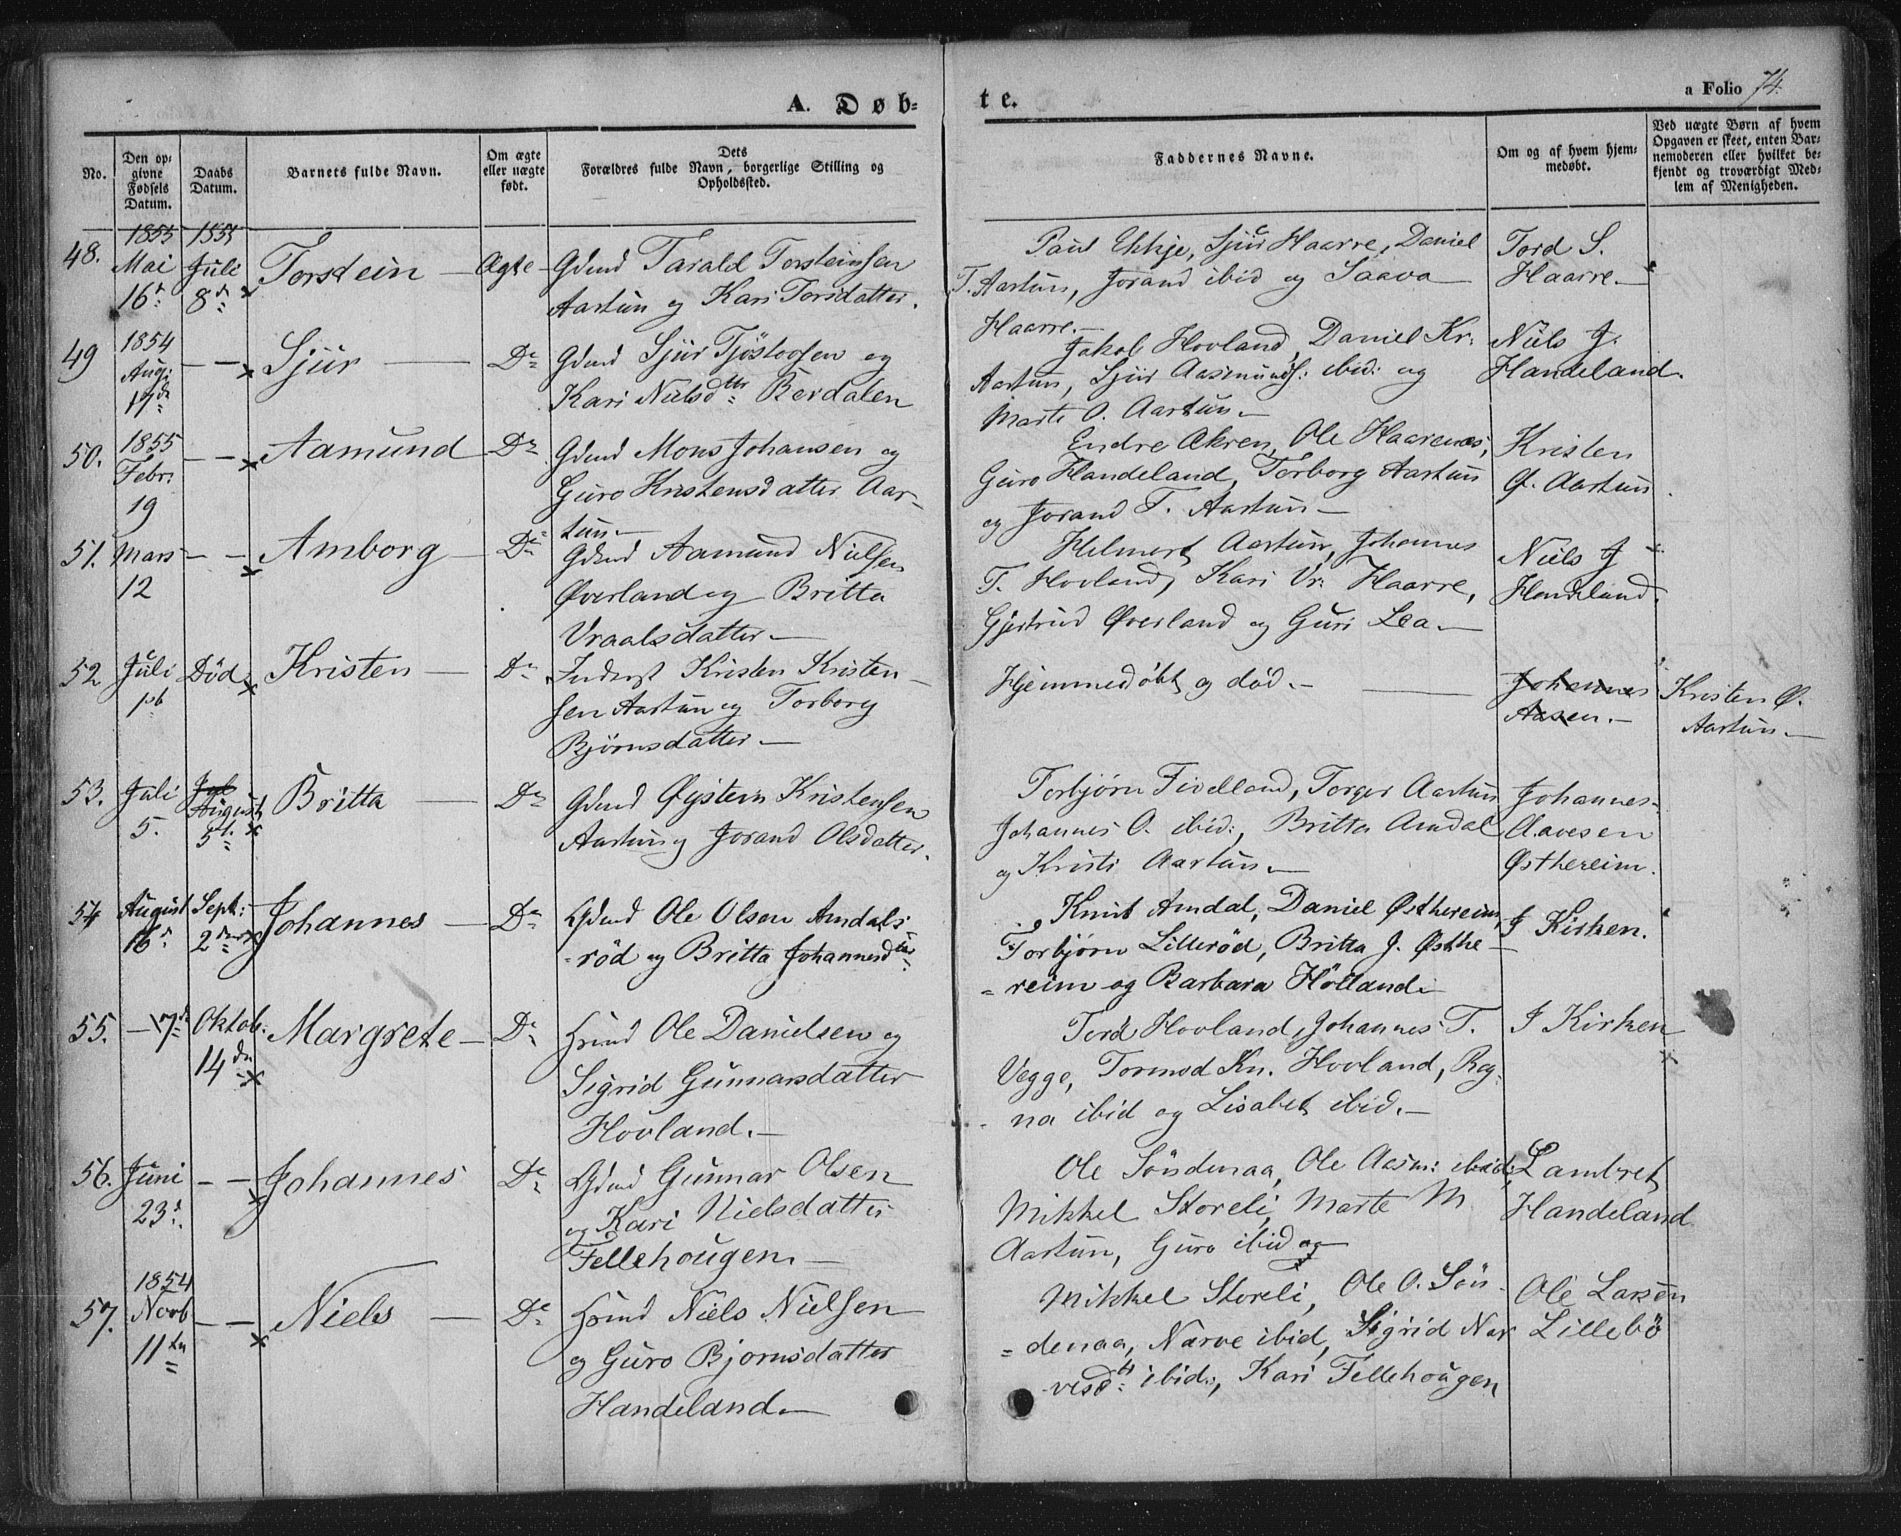 A. Døb=
te.
a Folio 74.
No.
Den op=
givne
Fødsels
Datum.
Daabs
Datum.
Barnets fulde Navn.
Om ægte
eller uægte
født.
Dets
Forældres fulde Navn, borgerlige Stilling og
Opholdssted.
Faddernes Navne.
Om og af hvem hjem=
medøbt.
Ved uægte Børn af hvem
Opgaven er skeet, enten Bar=
nemoderen eller hvilket be=
kjendt og troværdigt Med=
lem af Menigheden.
48.
1855
Mai
16d
1855
Juli
8d
Torstein
Ægte
Gdmd Tarald Torsteinsen
Aartun og Kari Torsdatter.
Paul Ekkje, Sjur Haarre, Daniel
T. Aartun, Jorand ibid og Saava
Haarre.
Tord S.
Haarre.
49
1854
Aug:
17de
Sjur
Do
Gdmd Sjur Tjöstovsen og
Kari Nielsdtr Berdalen
Jakob Hovland, Daniel Kr:
Aartun, Sjur Aasmunds: ibid: og
Marte O. Aartun.
Niels J.
Handeland.
50.
1855
Febr:
19
Aamund
Do
Gdmd Mons Johansen og
Guro Kristensdatter Aar-
tun
Endre Økren, Ole Haarenæs,
Guro Handeland, Torborg Aartun
og Jorand T. Aartun
Kristen
Ø. Aartun.
51.
Mars
12
Amborg
Do
Gdmd Aamund Nielsen
Øverland og Britta
Vraalsdatter
Helmert Aartun, Johannes
T. Hovland, Kari Vr: Haarre,
Gjertrud Øverland og Guri Lea
Niels J
Handeland.
52
Juli
1ste
Død
Kristen
Do
Inderst Kristen Kristen-
sen Aartun og Torborg
Bjørnsdatter
Hjemmedøbt og død.
Johannes
Aasen.
Kristen Ø.
Aartun.
53.
Juli
5.
Jul
August
5t.
Britta
Do
Gdmd Øystein Kristensen
Aartun og Jorand Olsdatter.
Torbjørn Fivelland, Torger Aartun
Johannes O. ibid:, Britta Amdal
og Kristi Aartun.
Johannes
Aavesen
Østhereim.
54
August
16d
Sept:
2den
Johannes
Do
Gdmd Ole Olsen Amdals-
röd og Britta Johannesdtr
Knut Amdal, Daniel Østhereim,
Torbjørn Lilleröd, Britta J. Østhe-
reim og Barbara Hölland.
I Kirken.
55.
17de
Oktob:
14de
Margrete
Do
Hsmd Ole Danielsen og
Sigrid Gunnarsdatter
Hovland.
Tord Hovland, Johannes T.
Vegge, Tormod Kn. Hovland, Rag-
na ibid og Lisabet ibid.
I Kirken
56.
Juni
23d.
Johannes
Do
Gdmd Gunnar Olsen
og Kari Nielsdatter
Fellehougen.
Ole Söndenaa, Ole Aasm: ibid,
Mikkel Storeli, Marte M
Aartun, Guro ibid og
Lambret
Handeland
57.
1854
Novb
11te
Niels
Do
Hsmd Niels Nielsen
og Guro Bjornsdatter
Handeland.
Mikkel Storeli, Ole O. Sön-
denaa, Narve ibid, Sigrid Nar
vesdtr ibid:, Kari Fellehougen
Ole Larsen
Lillebö